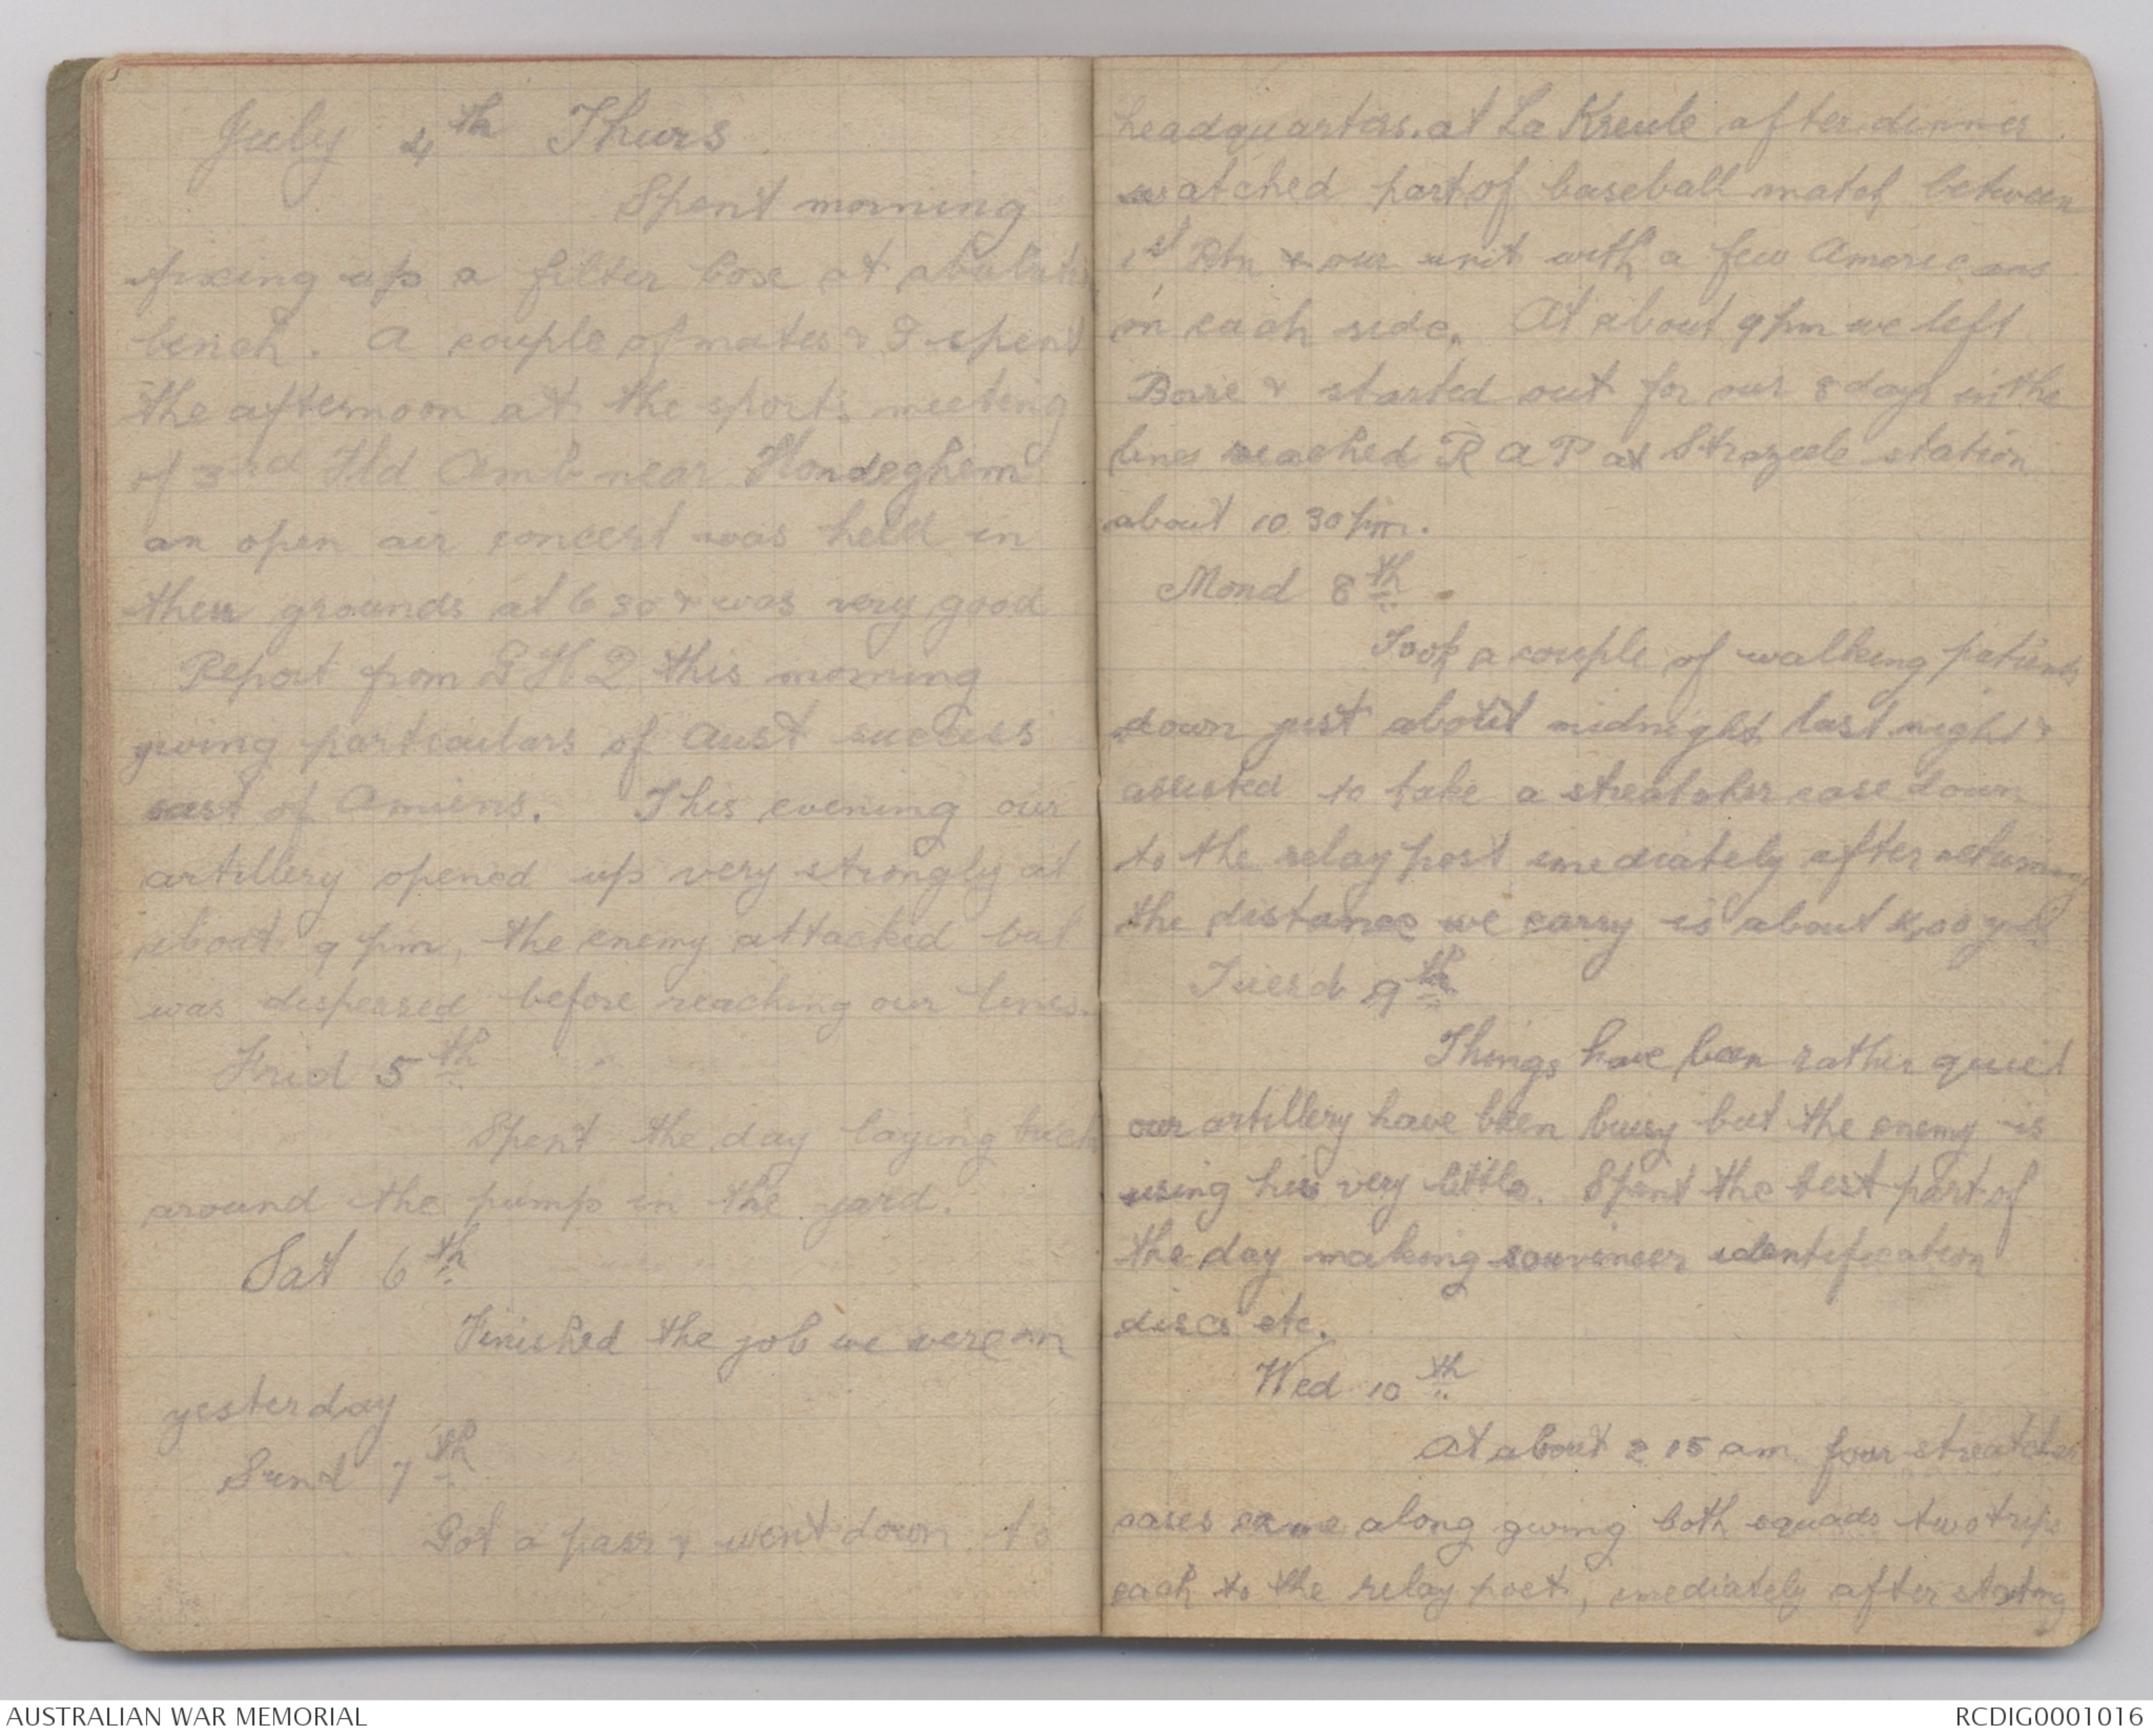 July 4th Thurs
Spent morning
fixing up a filter box at ablution
bench. A couple of mates & I spent
the afternoon at the sports meeting
of 3rd Fld Amb near Hondeghem
an open air concert was held in
their grounds at 6 30 & was very good
Report from G H Q this morning
giving particulars of Aust success
east of Amiens. This evening our
artillery opened up very strongly at
about 9 pm, the enemy attacked but
was dispersed before reaching our lines.
Frid 5th
Spent the day laying brick
around the pump in the yard.
Sat 6th
Finished the job we were on
yesterday
Sund 7th
Got a pass & went down to
headquarters. at La Kreule after dinner.
watched part of baseball match between
1st Btn & our unit with a few Americans
on each side. At about 9 pm we left
Borre & started out for our 8 days in the
lines reached R A P at Strazeele station
about 10 30 pm.
Mond 8th
Took a couple of walking patients
down just about midnight last night &
assisted to take a streatcher case down
to the relay post imediately after returning
the distance we carry is about yds
Tuesd 9th
Things have been rather quiet
our artillery have been busy but the enemy is
using his very little. Spent the best part of
the day making souvineer identification
discs etc.
Wed 10th
At about 2 15 am four streatcher
cases came along giving both squads two trips
each to the relay post, imediately after starting
AUSTRALIAN WAR MEMORIAL
RCDIG0001016